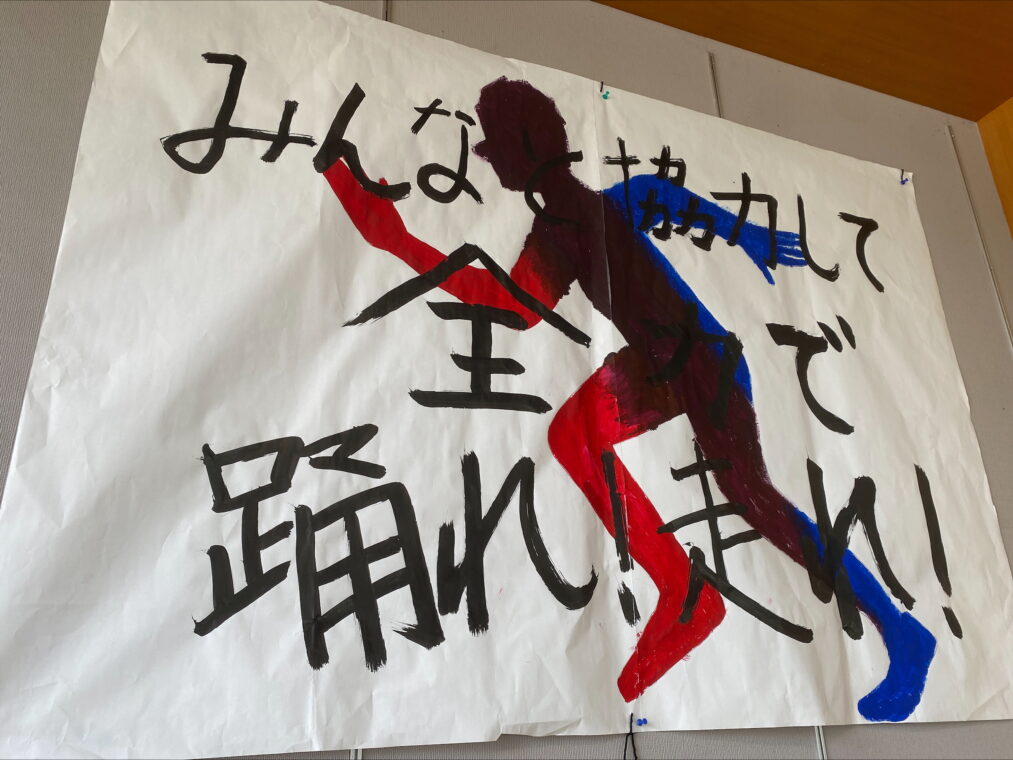 みんなと協力して
全力で
踊れ!走れ!